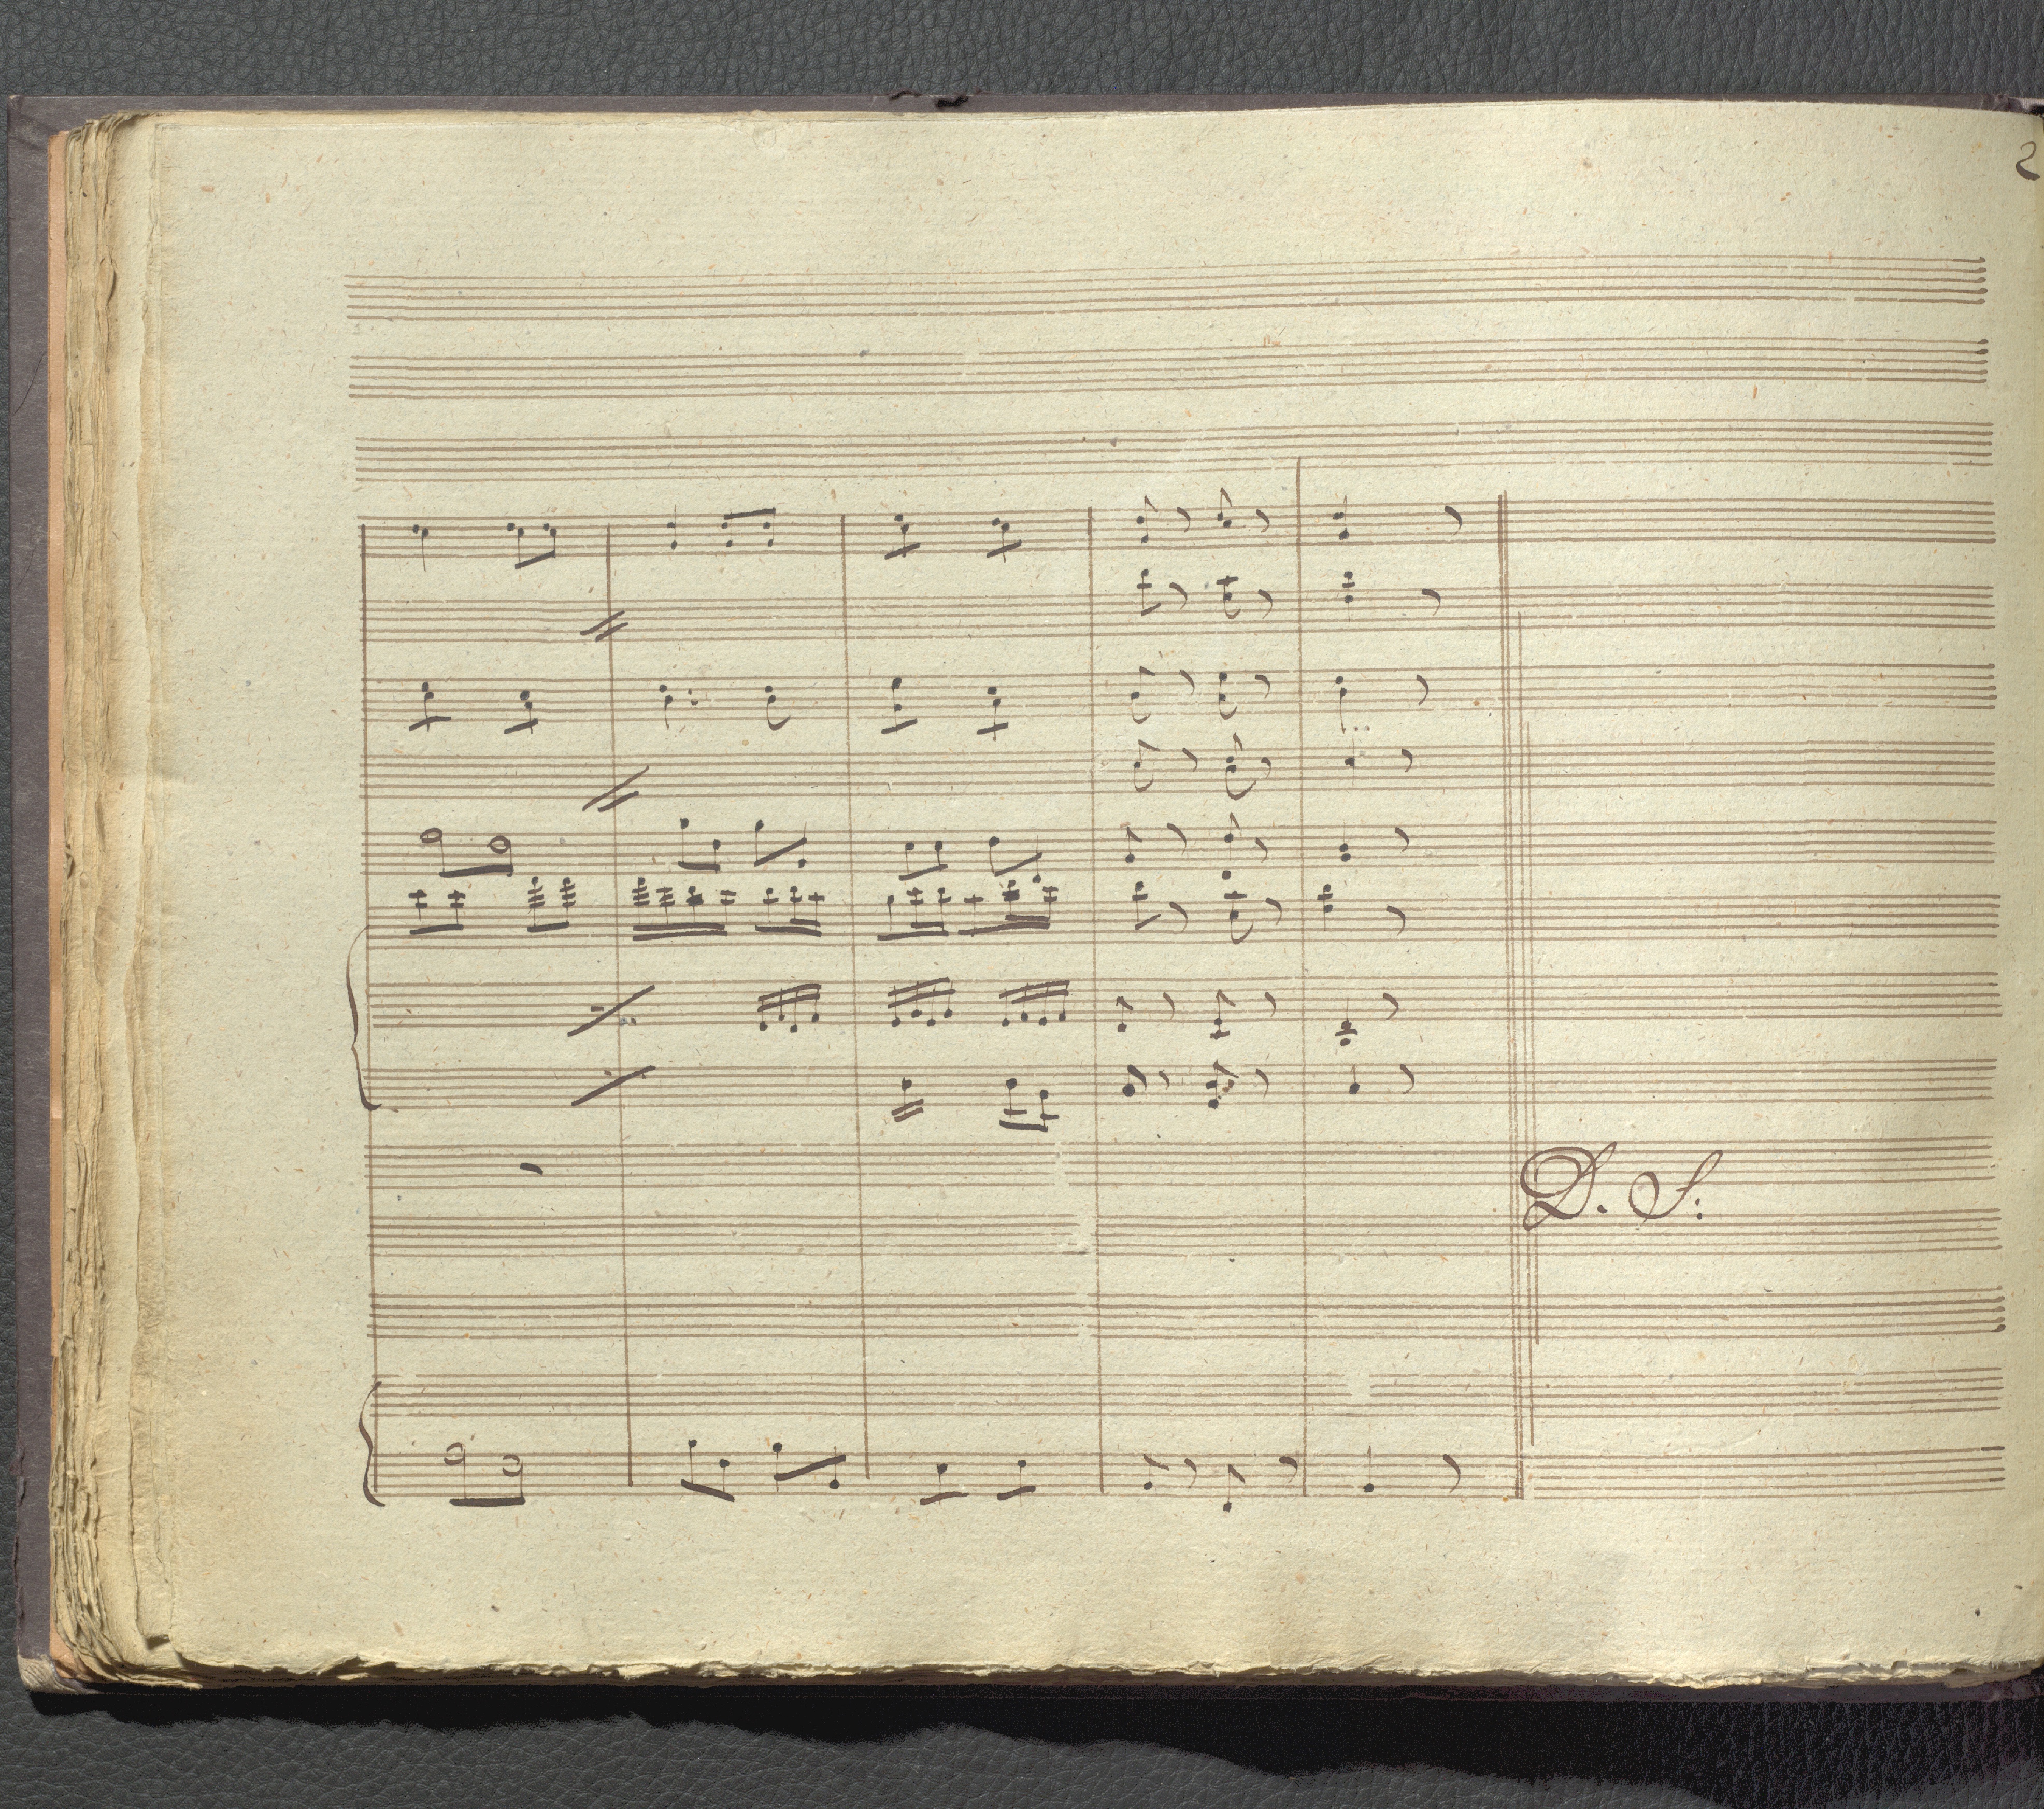 2
D. S: